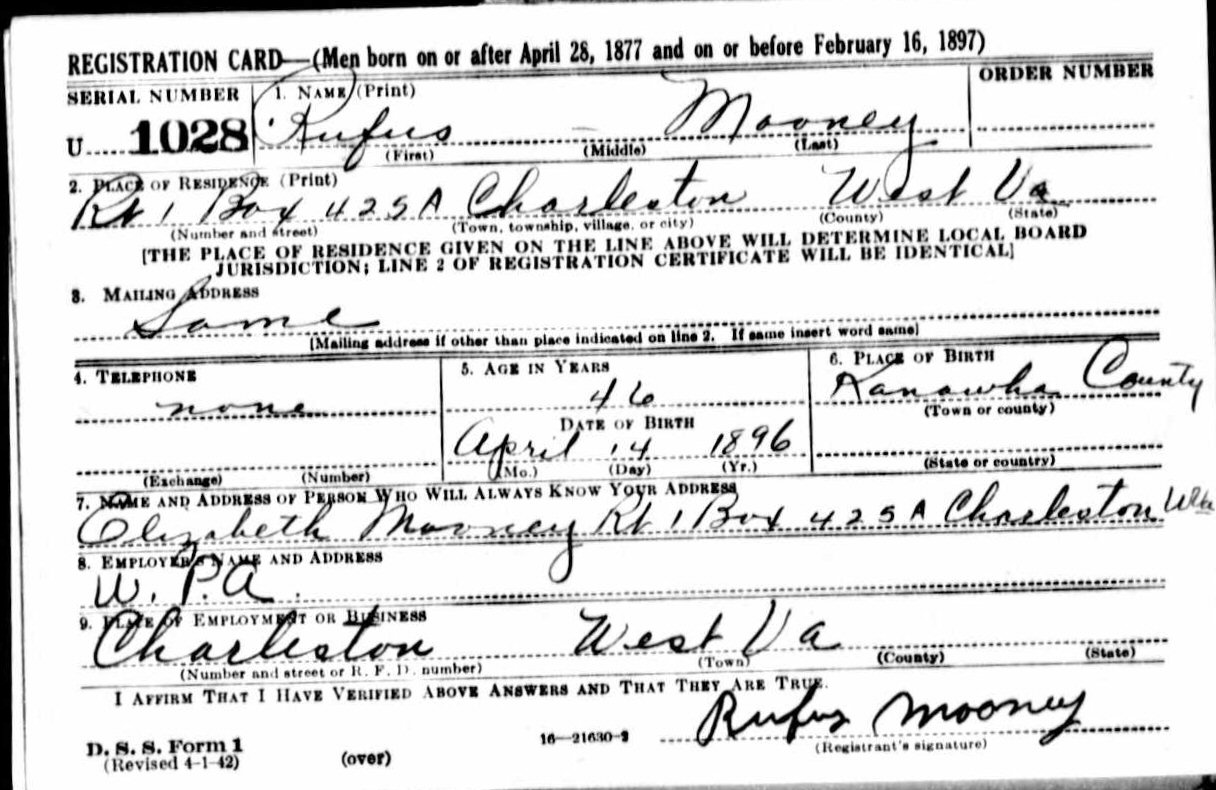 REGISTRATION CARD—(Men born on or after April 28, 1877 and on or before February 16, 1897)
SERIAL NUMBER 1. NAME (Print) ORDER NUMBER
U 1028 Rufus — Mooney
(First) (Middle) (Last)
2. PLACE OF RESIDENCE (Print)
Rt 1 Box 425A Charleston West Va
(Number and street) (Town, township, village, or city) (County) (State)
[THE PLACE OF RESIDENCE GIVEN ON THE LINE ABOVE WILL DETERMINE LOCAL BOARD
JURISDICTION; LINE 2 OF REGISTRATION CERTIFICATE WILL BE IDENTICAL]
3. MAILING ADDRESS
Same
[Mailing address if other than place indicated on line 2. If same insert word same]
4. TELEPHONE 5. AGE IN YEARS 6. PLACE OF BIRTH
none 46 Kanawha County
(Town or county)
DATE OF BIRTH
April 14 1896
(Exchange) (Number) (Mo.) (Day) (Yr.) (State or country)
7. NAME AND ADDRESS OF PERSON WHO WILL ALWAYS KNOW YOUR ADDRESS
Elizabeth Mooney Rt 1 Box 425A Charleston WVa
8. EMPLOYER'S NAME AND ADDRESS
W. P. A.
9. PLACE OF EMPLOYMENT OR BUSINESS
Charleston West Va
(Number and street or R. F. D. number) (Town) (County) (State)
I AFFIRM THAT I HAVE VERIFIED ABOVE ANSWERS AND THAT THEY ARE TRUE.
Rufus Mooney
D. S. S. Form 1 16—21630-2 (Registrant's signature)
(Revised 4-1-42) (over)